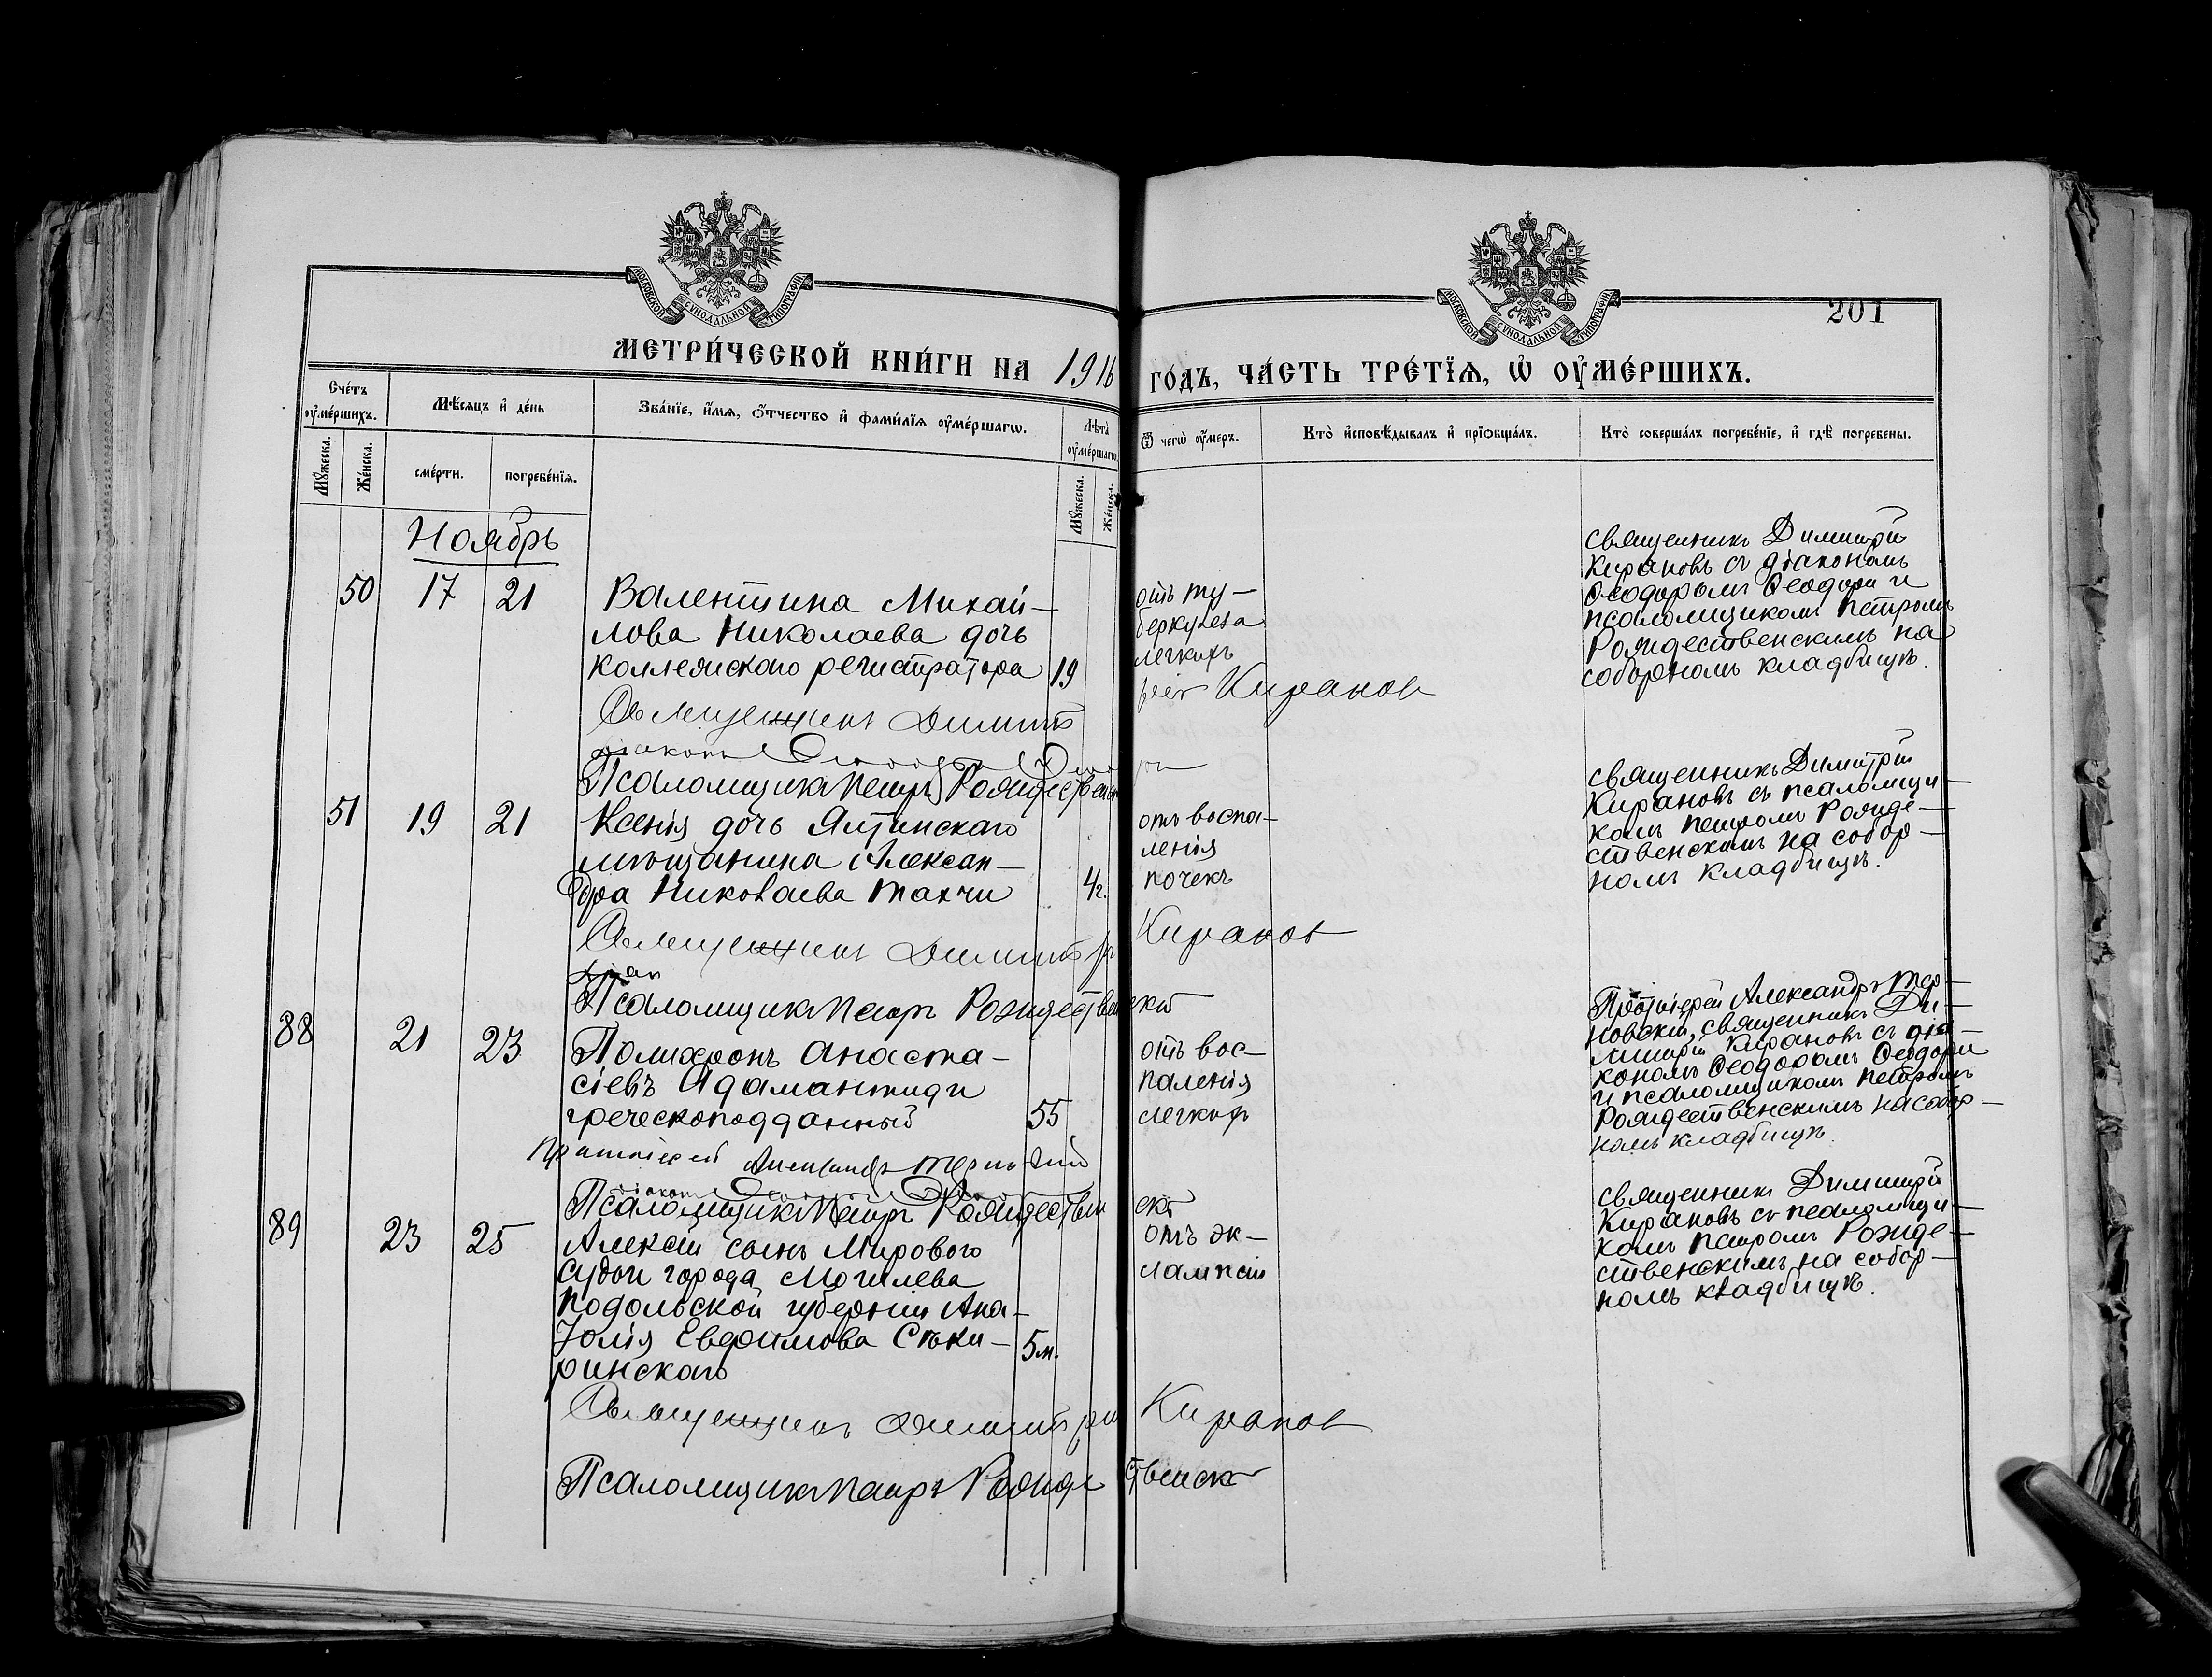 МОСКОВСКОЙ СѴНОДАЛЬНОЙ ТИПОГРАФІИ
МОСКОВСКОЙ СѴНОДАЛЬНОЙ ТИПОГРАФІИ
201
МЕТРИ́ЧЕСКОЙ КНИ́ГИ НА 1916 ГО́ДЪ, ЧА́СТЬ ТРЕ́ТЇѦ, Ѡ҆ ОУ҆МЕ́РШИХЪ.
Сче́тъ оу҆ме́ршихъ.
Мѣ́сяцъ и҆ де́нь
Зва́нїе, и҆́мѧ, ѻ҆́тчество и҆ фами́лїѧ оу҆ме́ршагѡ.
Лѣ́та оу҆ме́ршагѡ.
Ѿ чегѡ̀ оу҆́меръ.
Кто̀ и҆сповѣ́дывалъ и҆ прїѻбща́лъ.
Кто̀ соверша́лъ погребе́нїе, и҆ гдѣ̀ погребены.
Мꙋ́жеска.
Же́нска.
сме́рти.
погребе́нїѧ.
Мꙋ́жеска.
Же́нска.
Ноябрь
50 17 21
Валентина Михай-
лова Николаева дочь
коллежскаго регистратора 19
отъ ту-
беркулеза
легкихъ
священникъ Димитрій
Кирановъ съ діакономъ
Ѳеодоромъ Ѳеодори и
псаломщикомъ Петромъ
Рождественскимъ на
соборномъ кладбищѣ.
Священникъ Димитрій Кирановъ
діаконъ
Псаломщикъ Петръ Рождествен
51 19 21
Ксенія дочь Ялтинскаго
мѣщанина Алексан-
дра Николаева Тахчи 4г.
отъ воспа-
ленія
почекъ
священникъ Димитрій
Кирановъ съ псаломщи-
комъ Петромъ Рожде-
ственскимъ на собор-
номъ кладбищѣ.
Священникъ Димитрій Кирановъ
Псаломщикъ Петръ Рождественскій
88 21 23
Полихронъ Анаста-
сіевъ Адамантиди
греческоподданный 55
отъ вос-
паленія
легкихъ
Протоіерей Александръ Тер-
новскій, священникъ Ди-
митрій Кирановъ съ діа-
кономъ Ѳеодоромъ Ѳеодори
и псаломщикомъ Петромъ
Рождественскимъ на собор-
номъ кладбищѣ.
Протоіерей Александръ Терновскій
діаконъ
Псаломщикъ Петръ Рождественскій
89 23 25
Алексѣй сынъ Мирового
судьи города Могилева
Подольской губерніи Ана-
толія Евфимова Сѣки-
ринскаго 5м.
отъ эк-
лампсіи
священникъ Димитрій
Кирановъ съ псаломщи-
комъ Петромъ Рожде-
ственскимъ на собор-
номъ кладбищѣ.
Священникъ Димитрій Кирановъ
Псаломщикъ Петръ Рождественск